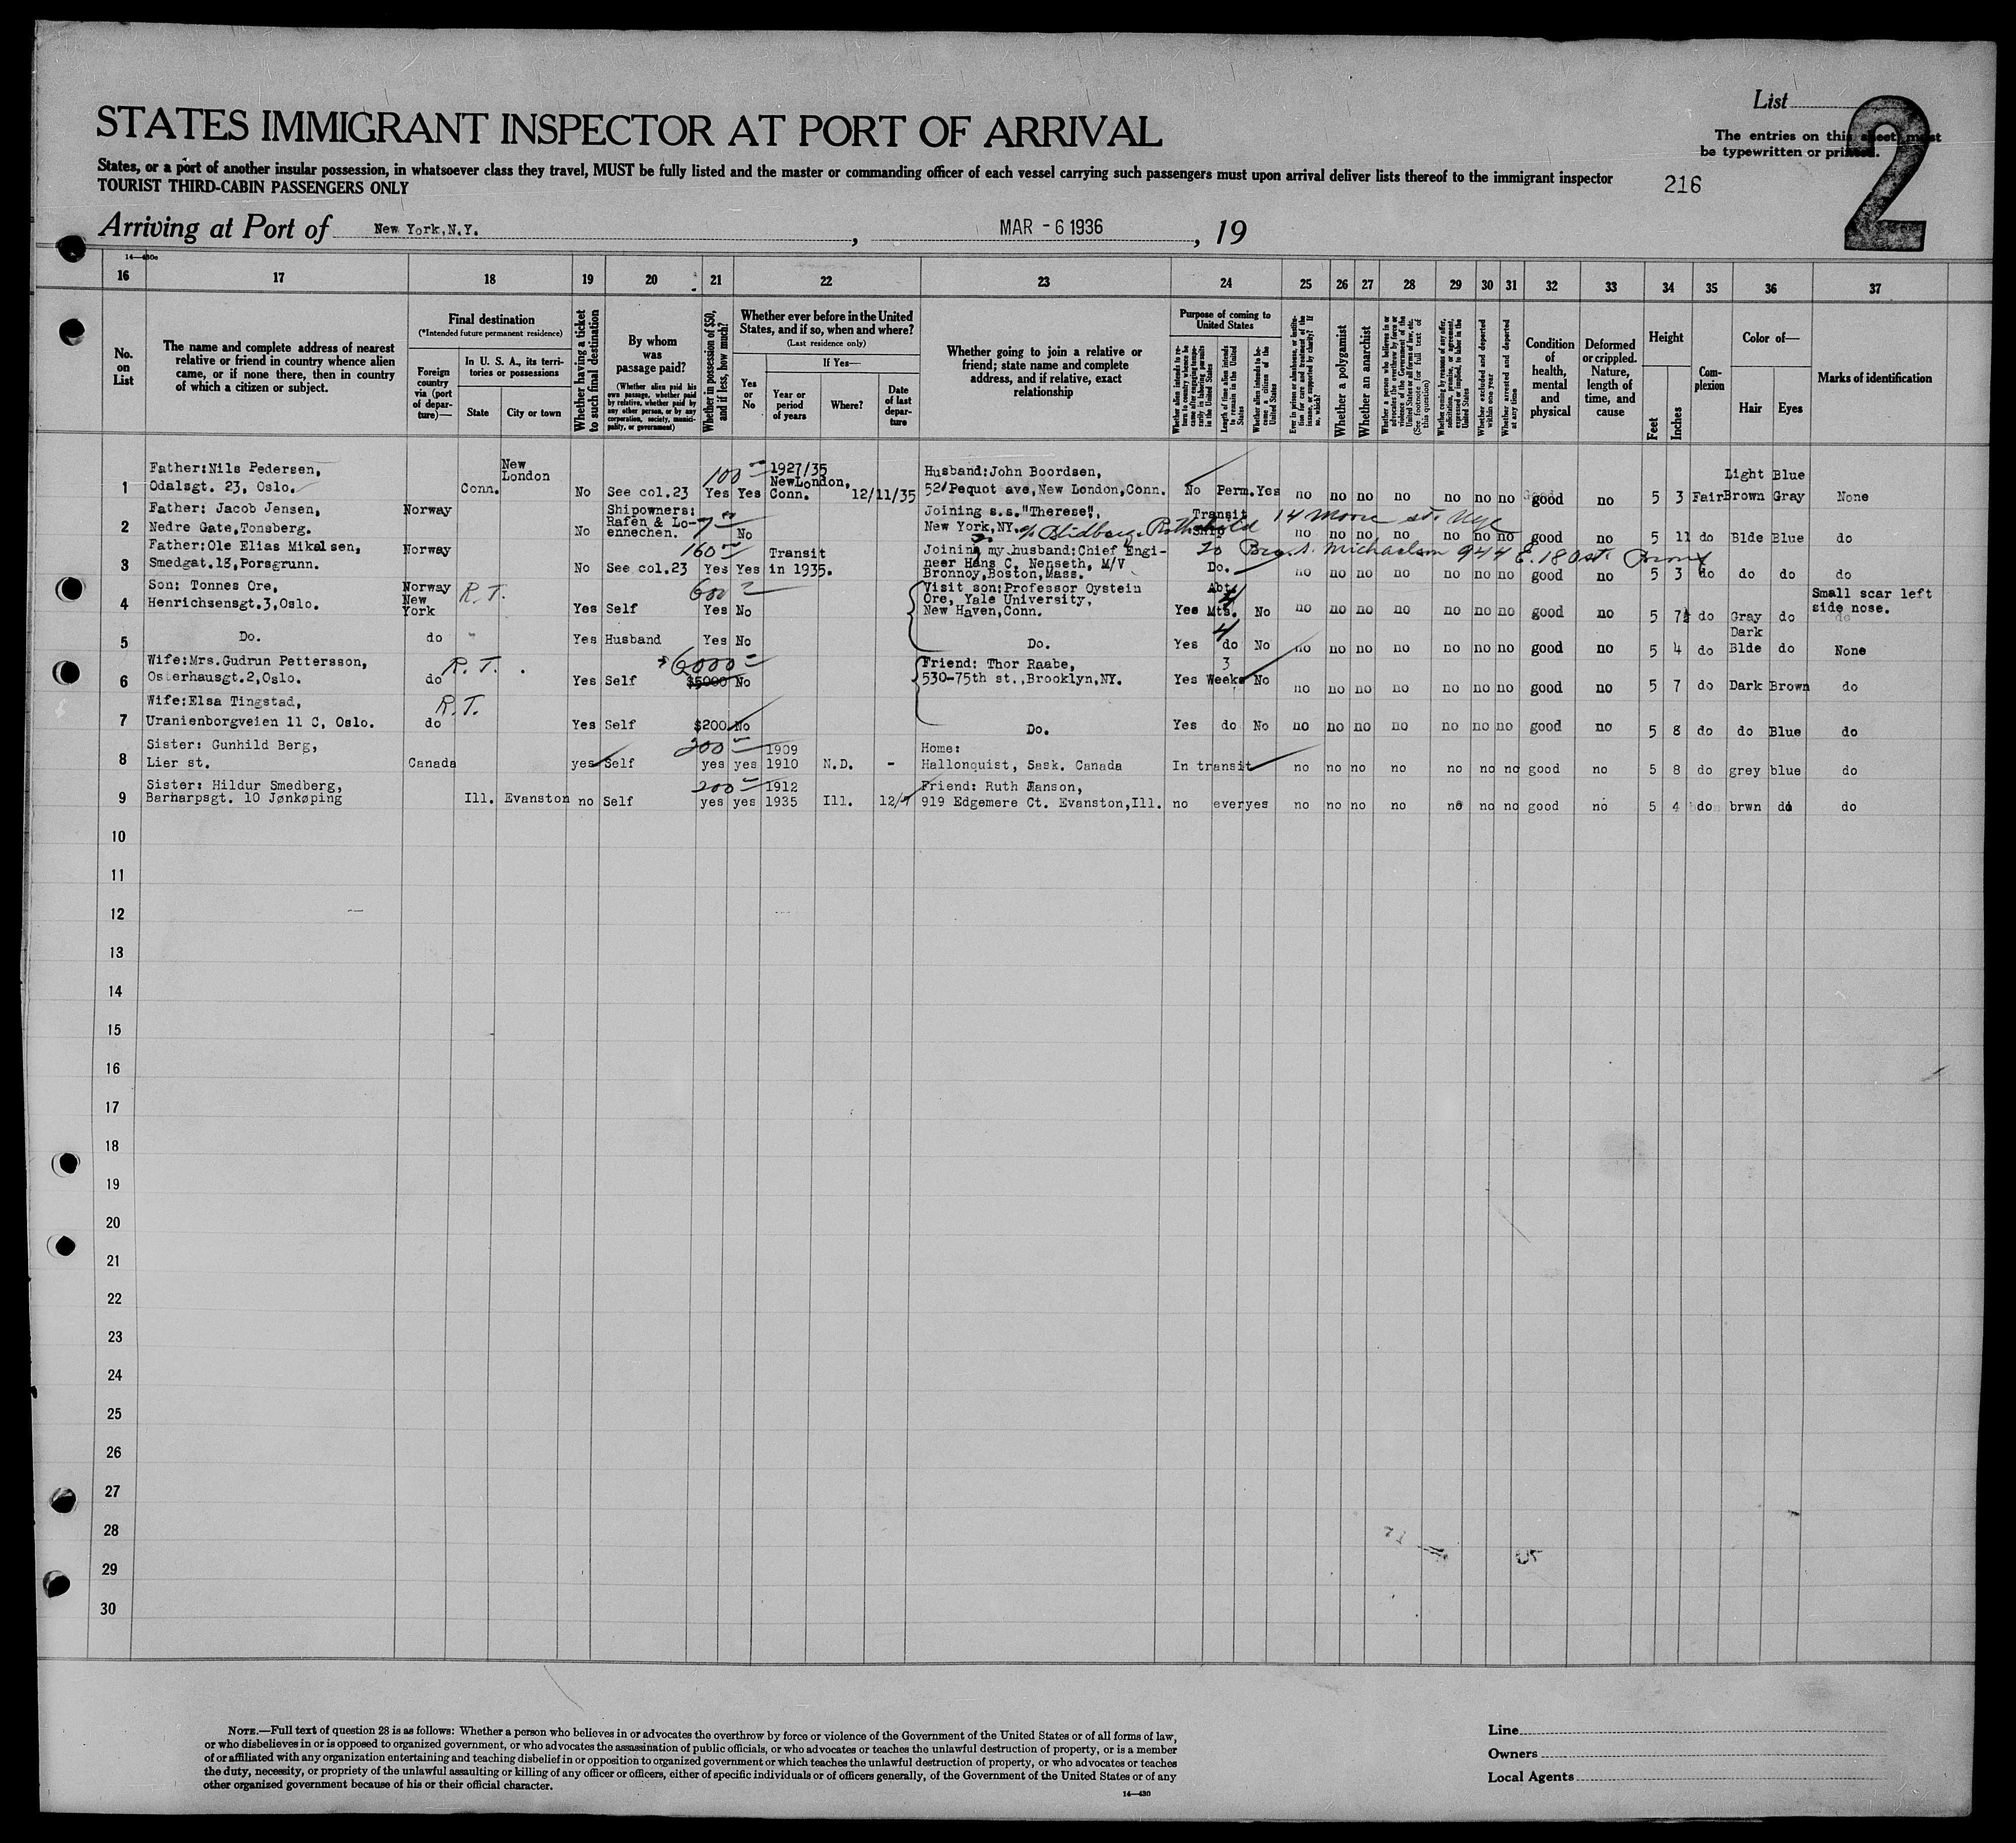 List
2
The entries on this sheet must
be typewritten or printed.
STATES IMMIGRANT INSPECTOR AT PORT OF ARRIVAL
States, or a port of another insular possession, in whatsoever class they travel, MUST be fully listed and the master or commanding officer of each vessel carrying such passengers must upon arrival deliver lists thereof to the immigrant inspector
TOURIST THIRD-CABIN PASSENGERS ONLY
216
Arriving at Port of New York, N.Y. , MAR - 6 1936 , 19
14—430c
16 17 18 19 20 21 22 23 24 25 26 27 28 29 30 31 32 33 34 35 36 37
No. on List
The name and complete address of nearest
relative or friend in country whence alien
came, or if none there, then in country
of which a citizen or subject.
Final destination
(*Intended future permanent residence)
Foreign country via (port of departure)—
In U. S. A., its territories or possessions
State
City or town
Whether having a ticket to such final destination
By whom was passage paid?
(Whether alien paid his own passage, whether paid by relative, whether paid by any other person, or by any corporation, society, municipality, or government)
Whether in possession of $50, and if less, how much?
Whether ever before in the United
States, and if so, when and where?
(Last residence only)
Yes or No
If Yes—
Year or period of years
Where?
Date of last departure
Whether going to join a relative or
friend; state name and complete
address, and if relative, exact
relationship
Purpose of coming to United States
Whether alien intends to return to country whence he came after engaging temporarily in laboring pursuits in the United States
Length of time alien intends to remain in the United States
Whether alien intends to become a citizen of the United States
Ever in prison or almshouse, or institution for care and treatment of the insane, or supported by charity? If so, which?
Whether a polygamist
Whether an anarchist
Whether a person who believes in or advocates the overthrow by force or violence of the Government of the United States or all forms of law, etc. (See footnote for full text of this question)
Whether coming by reason of any offer, solicitation, promise, or agreement, expressed or implied, to labor in the United States
Whether excluded and deported within one year
Whether arrested and deported at any time
Condition of health, mental and physical
Deformed or crippled. Nature, length of time, and cause
Height
Feet
Inches
Complexion
Color of—
Hair
Eyes
Marks of identification
1 Father:Nils Pedersen,
Odalsgt. 23, Oslo. Conn. New London No See col.23 100 Yes Yes 1927/35 NewLondon, Conn. 12/11/35 Husband:John Boordsen,
52 Pequot ave,New London,Conn. No Perm. Yes no no no no no no no good no 5 3 Fair Light Brown Blue Gray None
2 Father: Jacob Jensen,
Nedre Gate,Tonsberg. Norway No Shipowners: Rafen & Loennechen. 7 No Joining s.s."Therese",
New York,NY. Transit ship 14 Moore st. NYC no no no no no no no good no 5 11 do Blde Blue do
3 Father:Ole Elias Mikalsen,
Smedgat.13,Porsgrunn. Norway No See col.23 160 Yes Yes Transit in 1935. Joining my husband:Chief Engineer
Hans C. Nenseth, M/V
Bronnoy,Boston,Mass. Do. 944 E. 180 st. Bronx no no no no no no no good no 5 3 do do do do
4 Son: Tonnes Ore,
Henrichsensgt.3,Oslo. Norway New York R.T. Yes Self 600 Yes No Visit son:Professor Oystein
Ore, Yale University,
New Haven,Conn. Yes Abt. 4 Mts. No no no no no no no no good no 5 7½ do Gray do Small scar left side nose.
5 Do. do Yes Husband Yes No Do. Yes 4 do No no no no no no no no good no 5 4 do Dark Blde do None
6 Wife:Mrs.Gudrun Pettersson,
Osterhausgt.2,Oslo. do R.T. Yes Self 6000 $5000 No Friend: Thor Raabe,
530-75th st.,Brooklyn,NY. Yes 3 Weeks No no no no no no no no good no 5 7 do Dark Brown do
7 Wife:Elsa Tingstad,
Uranienborgveien 11 C, Oslo. do R.T. Yes Self $200 No Do. Yes do No no no no no no no no good no 5 8 do do Blue do
8 Sister: Gunhild Berg,
Lier st. Canada yes Self 200 yes yes 1909 1910 N.D. - Home:
Hallonquist, Sask. Canada In transit no no no no no no no good no 5 8 do grey blue do
9 Sister: Hildur Smedberg,
Barnarpsgt. 10 Jønkøping Ill. Evanston no Self 200 yes yes 1912 1935 Ill. 12/ Friend: Ruth Hanson,
919 Edgemere Ct. Evanston,Ill. no ever yes no no no no no no no good no 5 4 do brwn do do
10
11
12
13
14
15
16
17
18
19
20
21
22
23
24
25
26
27
28
29
30
NOTE.—Full text of question 28 is as follows: Whether a person who believes in or advocates the overthrow by force or violence of the Government of the United States or of all forms of law,
or who disbelieves in or is opposed to organized government, or who advocates the assassination of public officials, or who advocates or teaches the unlawful destruction of property, or is a member
of or affiliated with any organization entertaining and teaching disbelief in or opposition to organized government or which teaches the unlawful destruction of property, or who advocates or teaches
the duty, necessity, or propriety of the unlawful assaulting or killing of any officer or officers, either of specific individuals or of officers generally, of the Government of the United States or of any
other organized government because of his or their official character.
14—430
Line
Owners
Local Agents